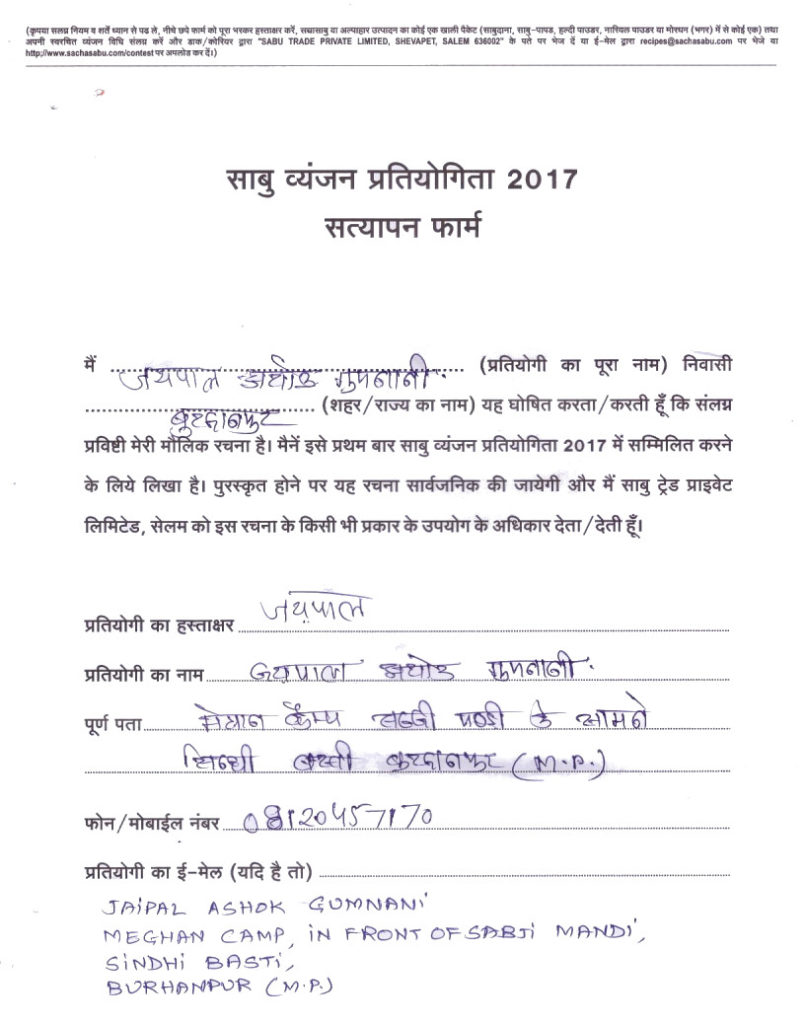 (कृपया सलग्न नियम व शर्तें ध्यान से पढ ले, नीचे छपे फार्म को पूरा भरकर हस्ताक्षर करें, सच्चासाबु वा अल्पाहार उत्पादन का कोई एक खाली पैकेट (साबुदाना, साबु-पापड, हल्दी पाउडर, नारियल पाउडर या मोरधन (भगर) में से कोई एक) तथा
अपनी स्वरचित व्यंजन विधि संलग्न करें और डाक/कोरियर द्वारा "SABU TRADE PRIVATE LIMITED, SHEVAPET, SALEM 636002" के पते पर भेज दें या ई-मेल द्वारा recipes@sachasabu.com पर भेजे या
http://www.sachasabu.com/contest पर अपलोड कर दें।)
साबु व्यंजन प्रतियोगिता 2017
सत्यापन फार्म
मैं जयपाल अशोक गुमनानी. (प्रतियोगी का पूरा नाम) निवासी
बुरहानपुर (शहर/राज्य का नाम) यह घोषित करता/करती हूँ कि संलग्न
प्रविष्टी मेरी मौलिक रचना है। मैनें इसे प्रथम बार साबु व्यंजन प्रतियोगिता 2017 में सम्मिलित करने
के लिये लिखा है। पुरस्कृत होने पर यह रचना सार्वजनिक की जायेगी और मैं साबु ट्रेड प्राइवेट
लिमिटेड, सेलम को इस रचना के किसी भी प्रकार के उपयोग के अधिकार देता/देती हूँ।
प्रतियोगी का हस्ताक्षर जयपाल
प्रतियोगी का नाम जयपाल अशोक गुमनानी.
पूर्ण पता मेघान कैम्प सब्जी मण्डी के सामने
सिन्धी बस्ती बुरहानपुर (M.P.)
फोन/मोबाईल नंबर 08120457170
प्रतियोगी का ई-मेल (यदि है तो)
JAIPAL ASHOK GUMNANI
MEGHAN CAMP, IN FRONT OF SABJI MANDI,
SINDHI BASTI,
BURHANPUR (M.P.)